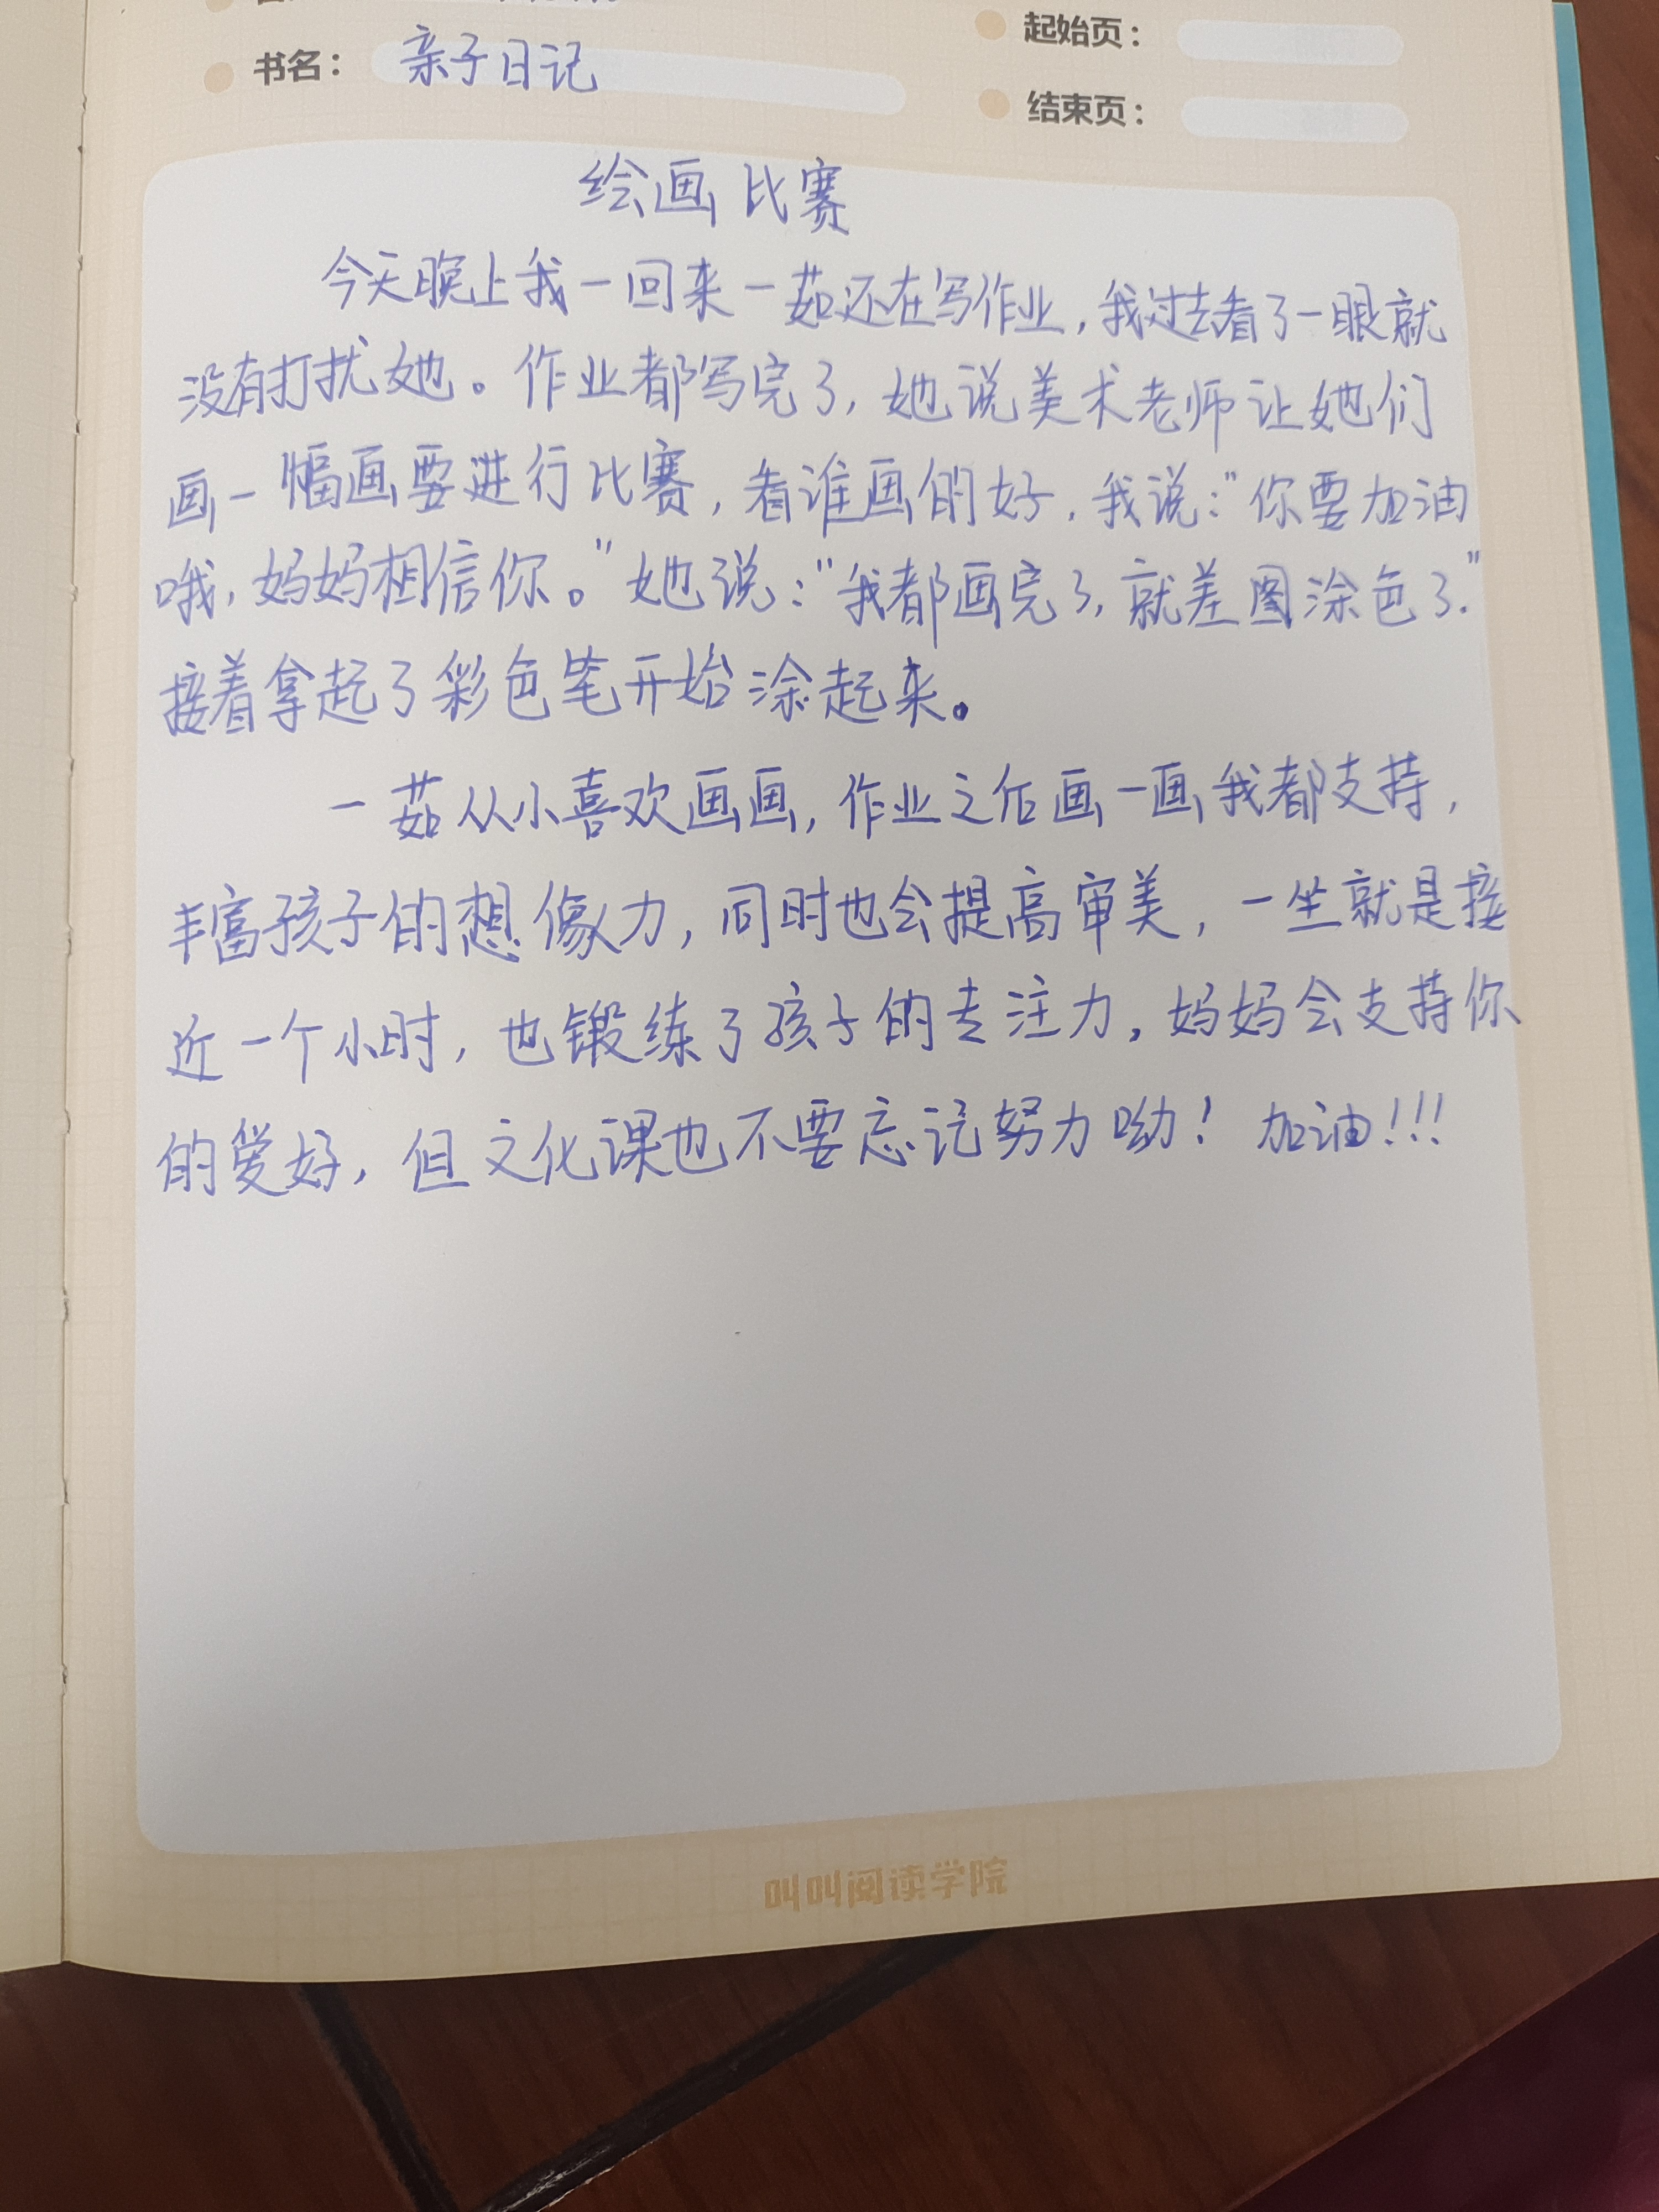 书名：亲子日记
起始页：
结束页：
绘画比赛
今天晚上我一回来一茹还在写作业，我过去看了一眼就
没有打扰她。作业都写完了，她说美术老师让她们
画一幅画要进行比赛，看谁画的好，我说："你要加油
哦，妈妈相信你。"她说："我都画完了，就差图涂色了."
接着拿起了彩色笔开始涂起来。
一茹从小喜欢画画，作业之后画一画我都支持，
丰富孩子的想像力，同时也会提高审美，一坐就是接
近一个小时，也锻练了孩子的专注力，妈妈会支持你
的爱好，但文化课也不要忘记努力呦！加油！！！
叫叫阅读学院